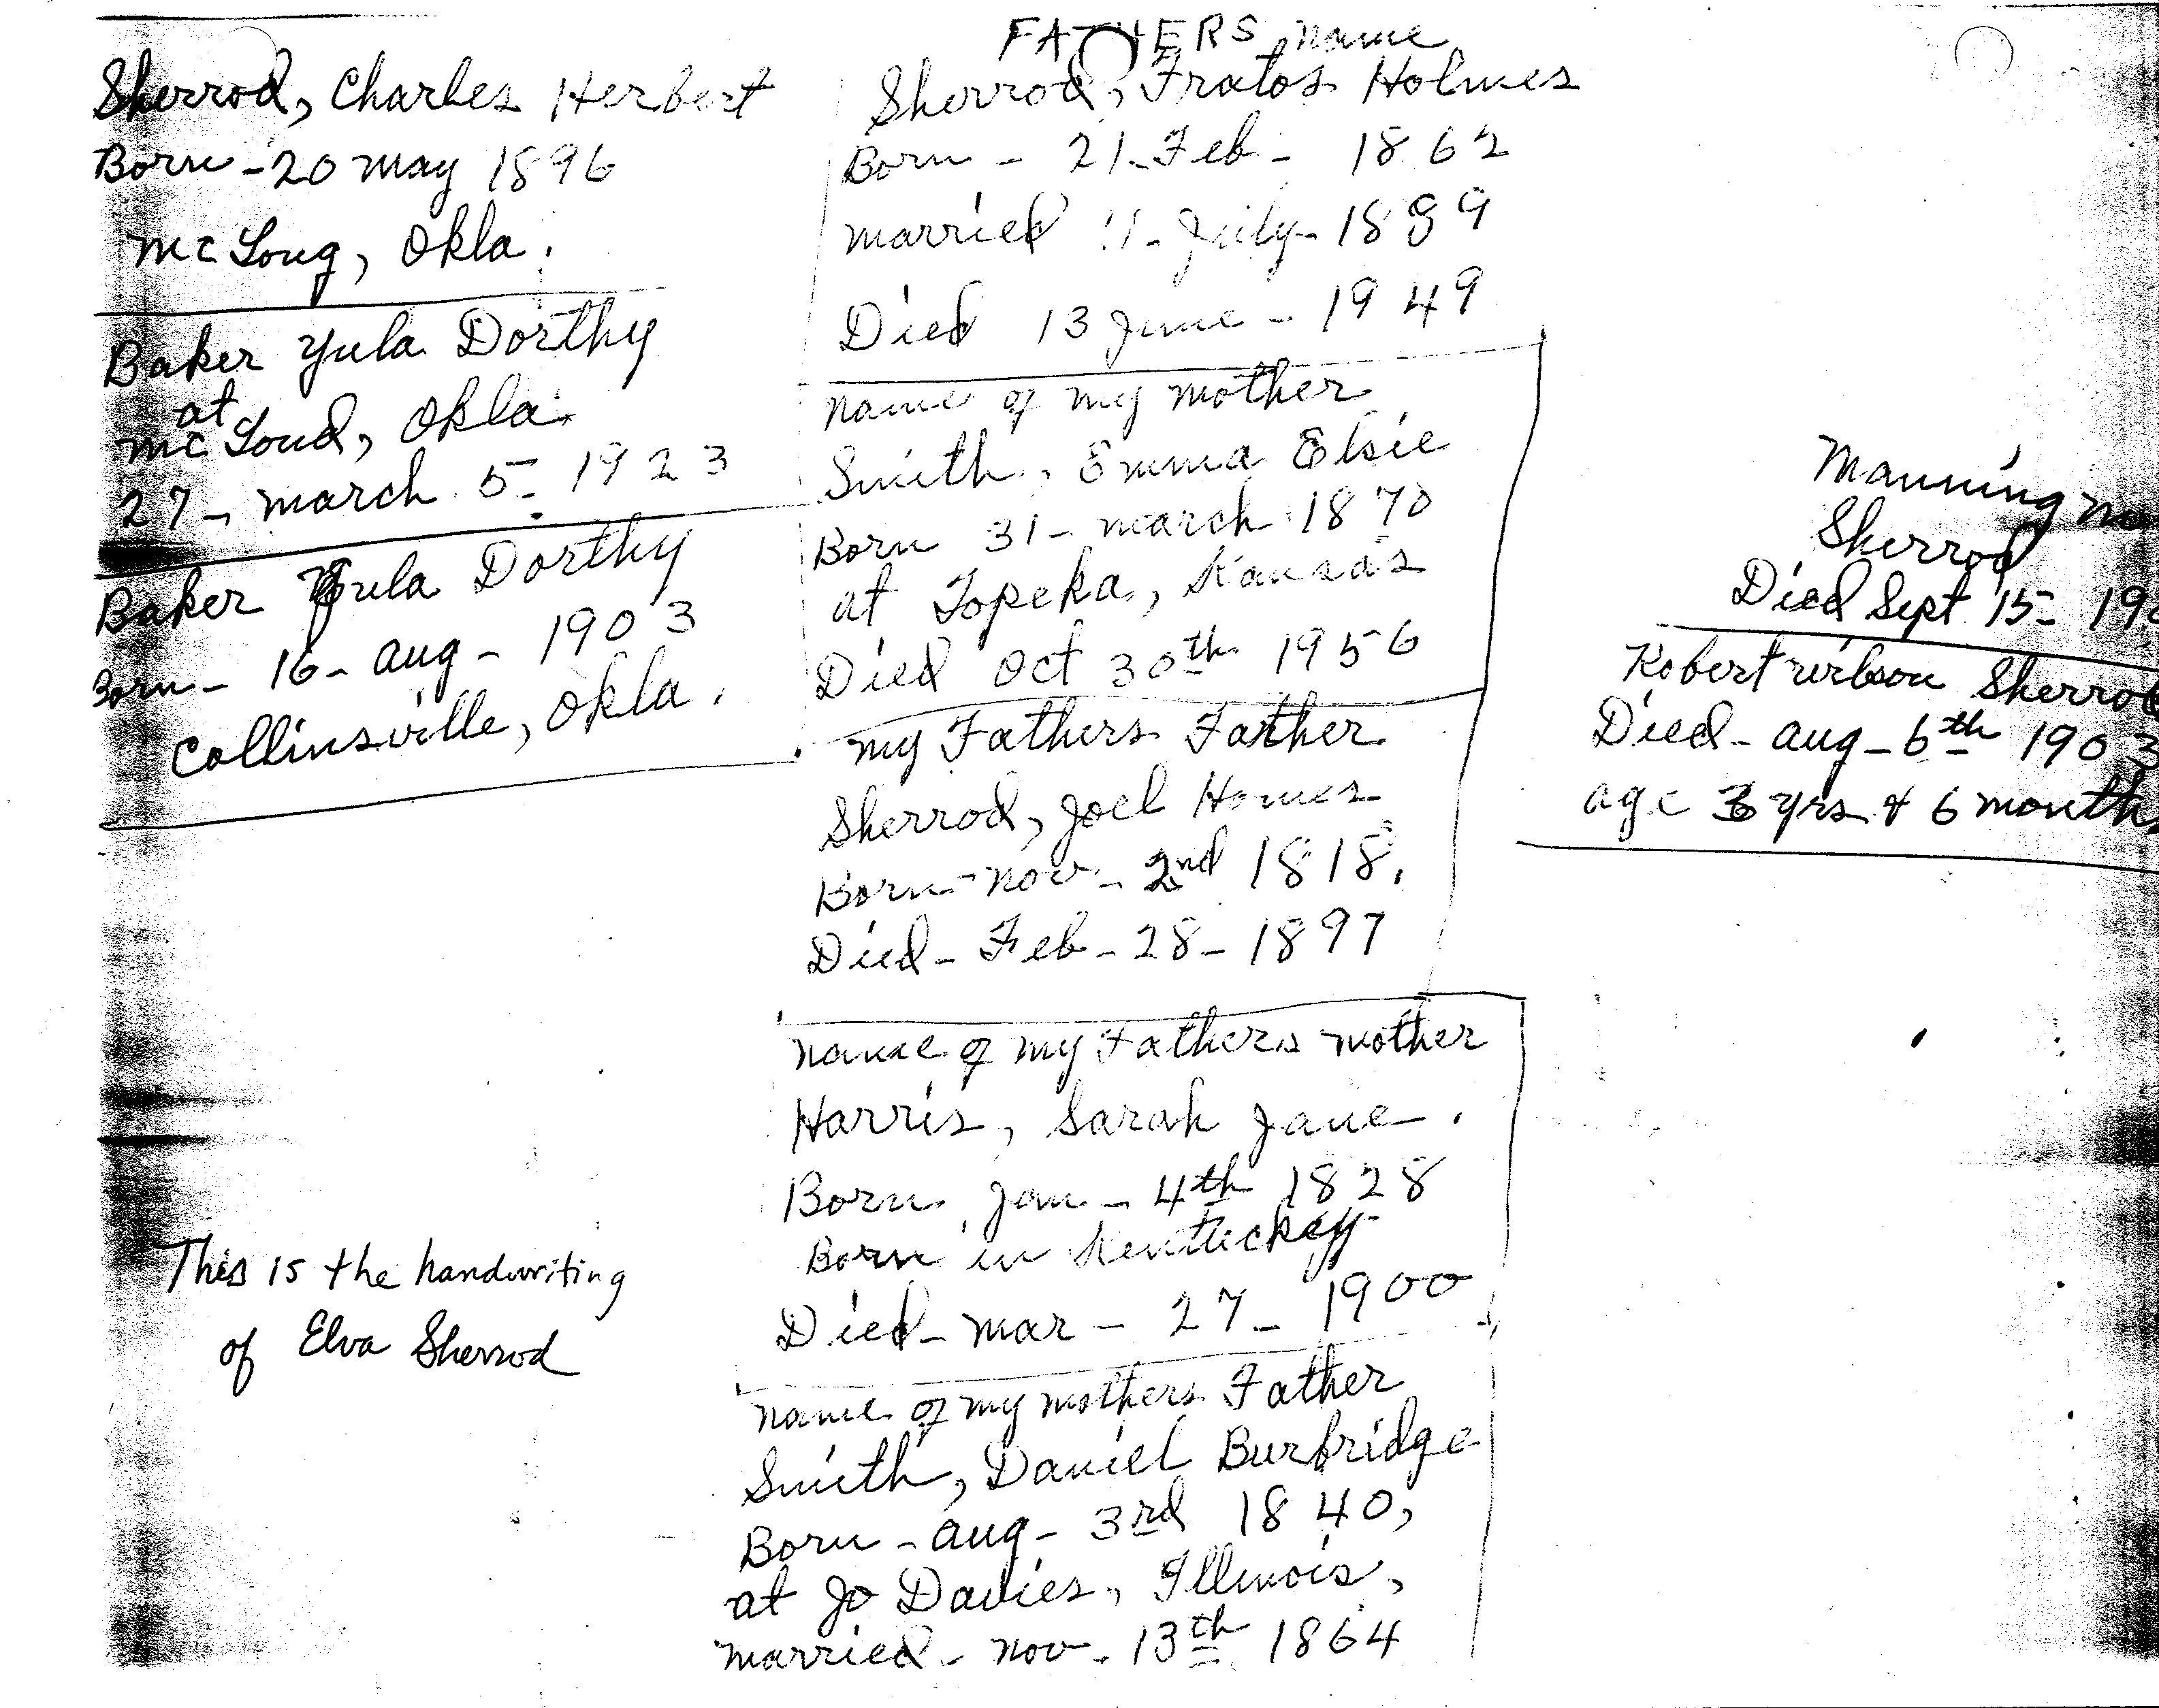 Sherrod, Charles Herbert
Born - 20 may 1896
mc Loug, Okla.
Baker Yula Dorthy
at
mc Loud, Okla.
27 - march 5 - 1923
Baker Yula Dorthy
Born - 16 - aug - 1903
Collinsville, Okla.
This is the handwriting
of Elva Sherrod
FATHERS name
Sherrod, Fratos Holmes
Born - 21 - Feb - 1862
married 11 - July - 1889
Died 13 June - 1949
name of my mother
Smith, Emma Elsie
Born 31 - march 1870
at Topeka, Kansas
Died Oct 30th 1956
my Fathers Father
Sherrod, Joel Homes
Born - nov - 2nd 1818,
Died - Feb - 28 - 1897
name of my Fathers mother
Harris, Sarah Jane.
Born Jan - 4th 1828
Born in Kentuckey
Died - mar - 27 - 1900
name of my mothers Father
Smith, Daniel Burbridge
Born - aug - 3rd 1840,
at Jo Davies, Illinois,
married - nov - 13th 1864
Manning
Sherrod
Died Sept 15 -
Robert Sherrod
Died - aug - 6th 1903
age yrs & 6 months